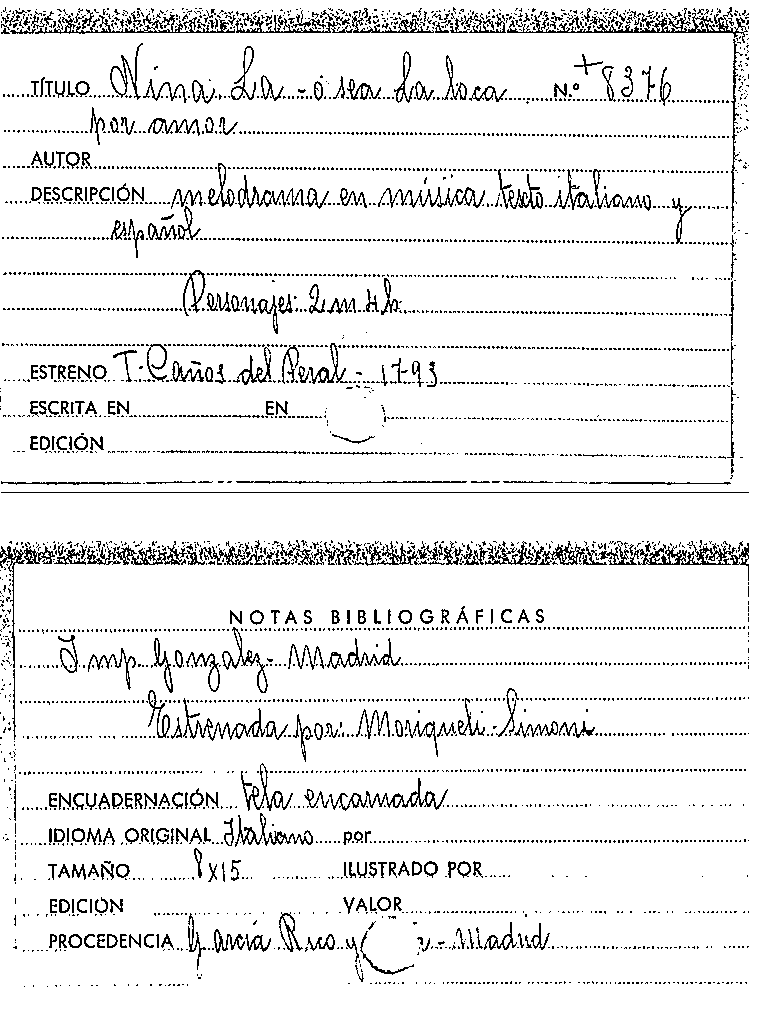 TÍTULO Nina La - ó sea La loca N.º + 8376
por amor
AUTOR
DESCRIPCIÓN melodrama en música texto italiano y
español
Personajes: 2 m 4 h.
ESTRENO T. Caños del Peral - 1793
ESCRITA EN EN
EDICIÓN
NOTAS BIBLIOGRÁFICAS
Imp Gonzalez - Madrid
Estrenada por: Moriqueli - Simoni
ENCUADERNACIÓN tela encarnada
IDIOMA ORIGINAL Italiano por
TAMAÑO 8 x 15 ILUSTRADO POR
EDICIÓN VALOR
PROCEDENCIA García Rico y - Madrid